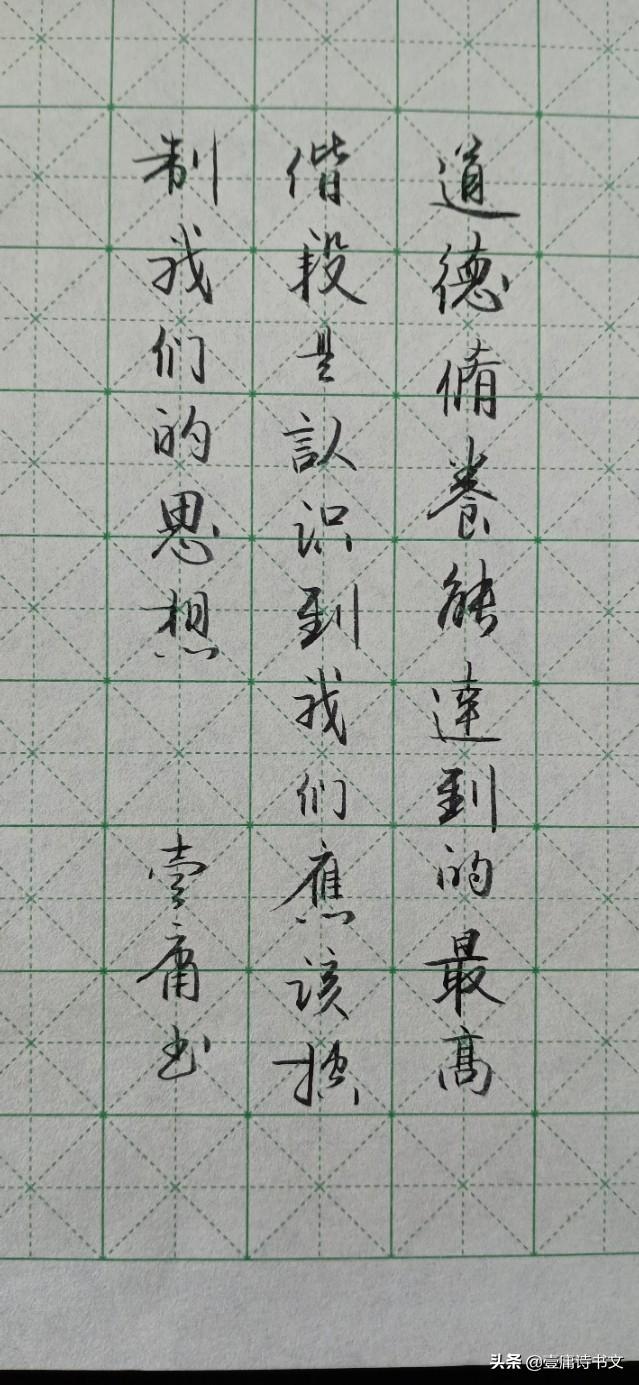 道德脩養能達到的最高
偕段是認识到我们應该控
制我们的思想 壹庸书
头条 @壹庸诗书文